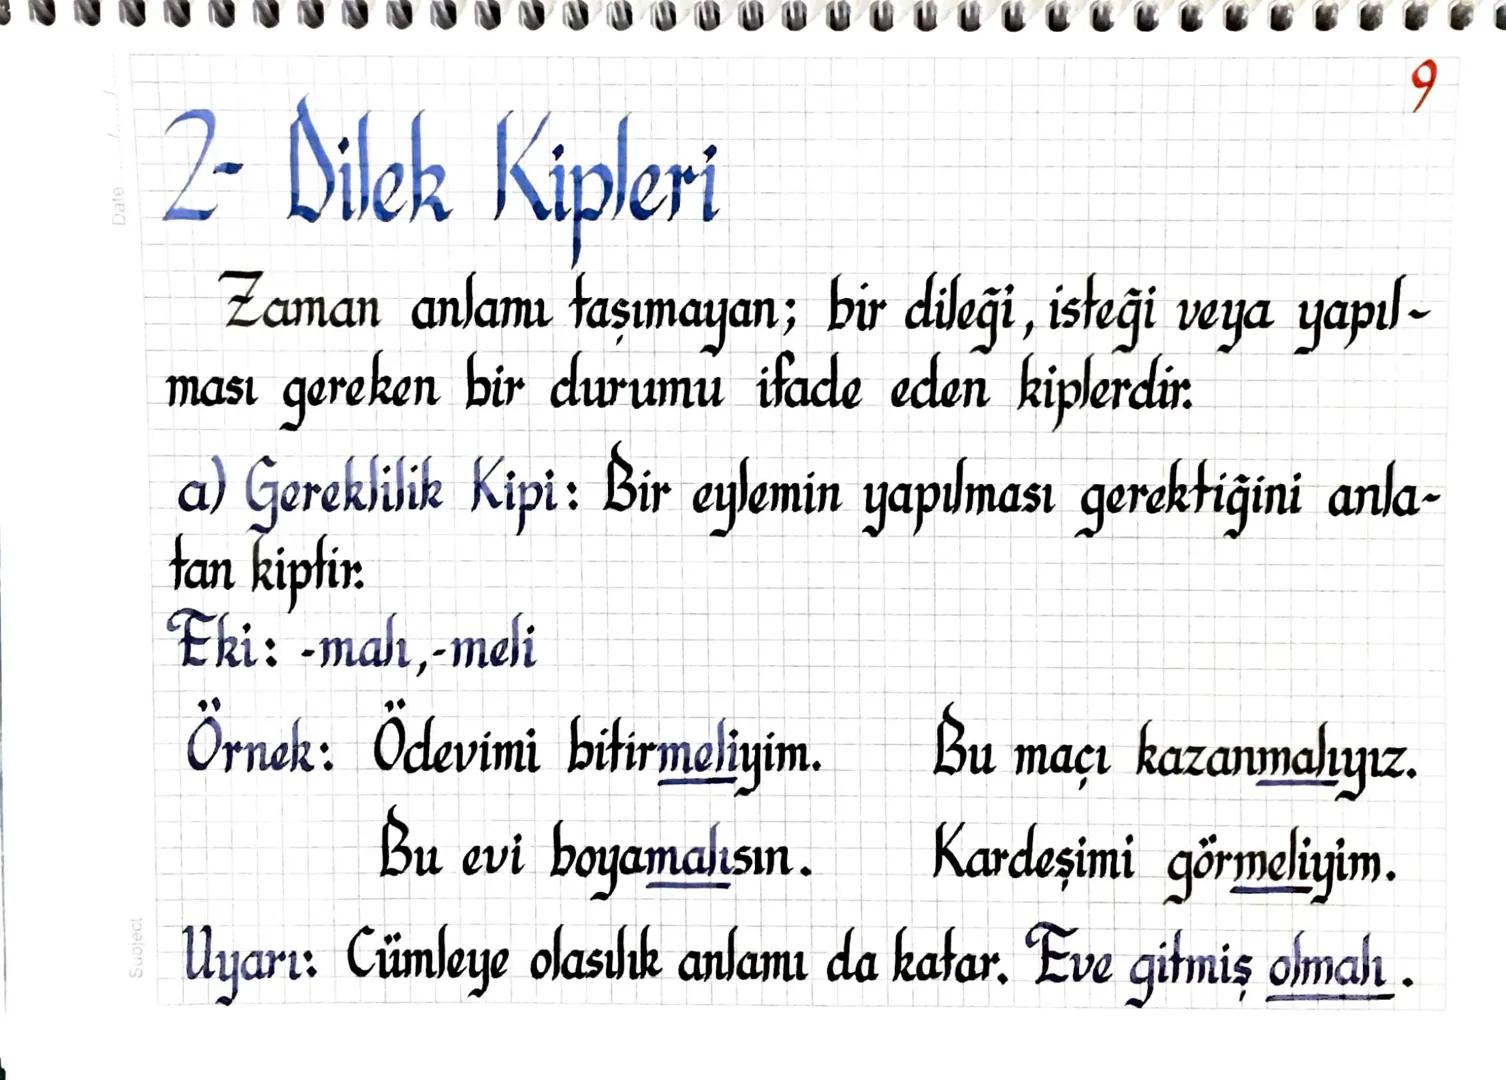 9
2- Dilek Kipleri
Zaman anlamı taşımayan; bir dileği, isteği veya yapıl-
ması gereken bir durumu ifade eden kiplerdir.
a) Gereklilik Kipi: Bir eylemin yapılması gerektiğini anla-
tan kiptir.
Eki: -malı,-meli
Örnek: Ödevimi bitirmeliyim. Bu maçı kazanmalıyız.
Bu evi boyamalısın. Kardeşimi görmeliyim.
Uyarı: Cümleye olasılık anlamı da katar. Eve gitmiş olmalı.
Date
Subject